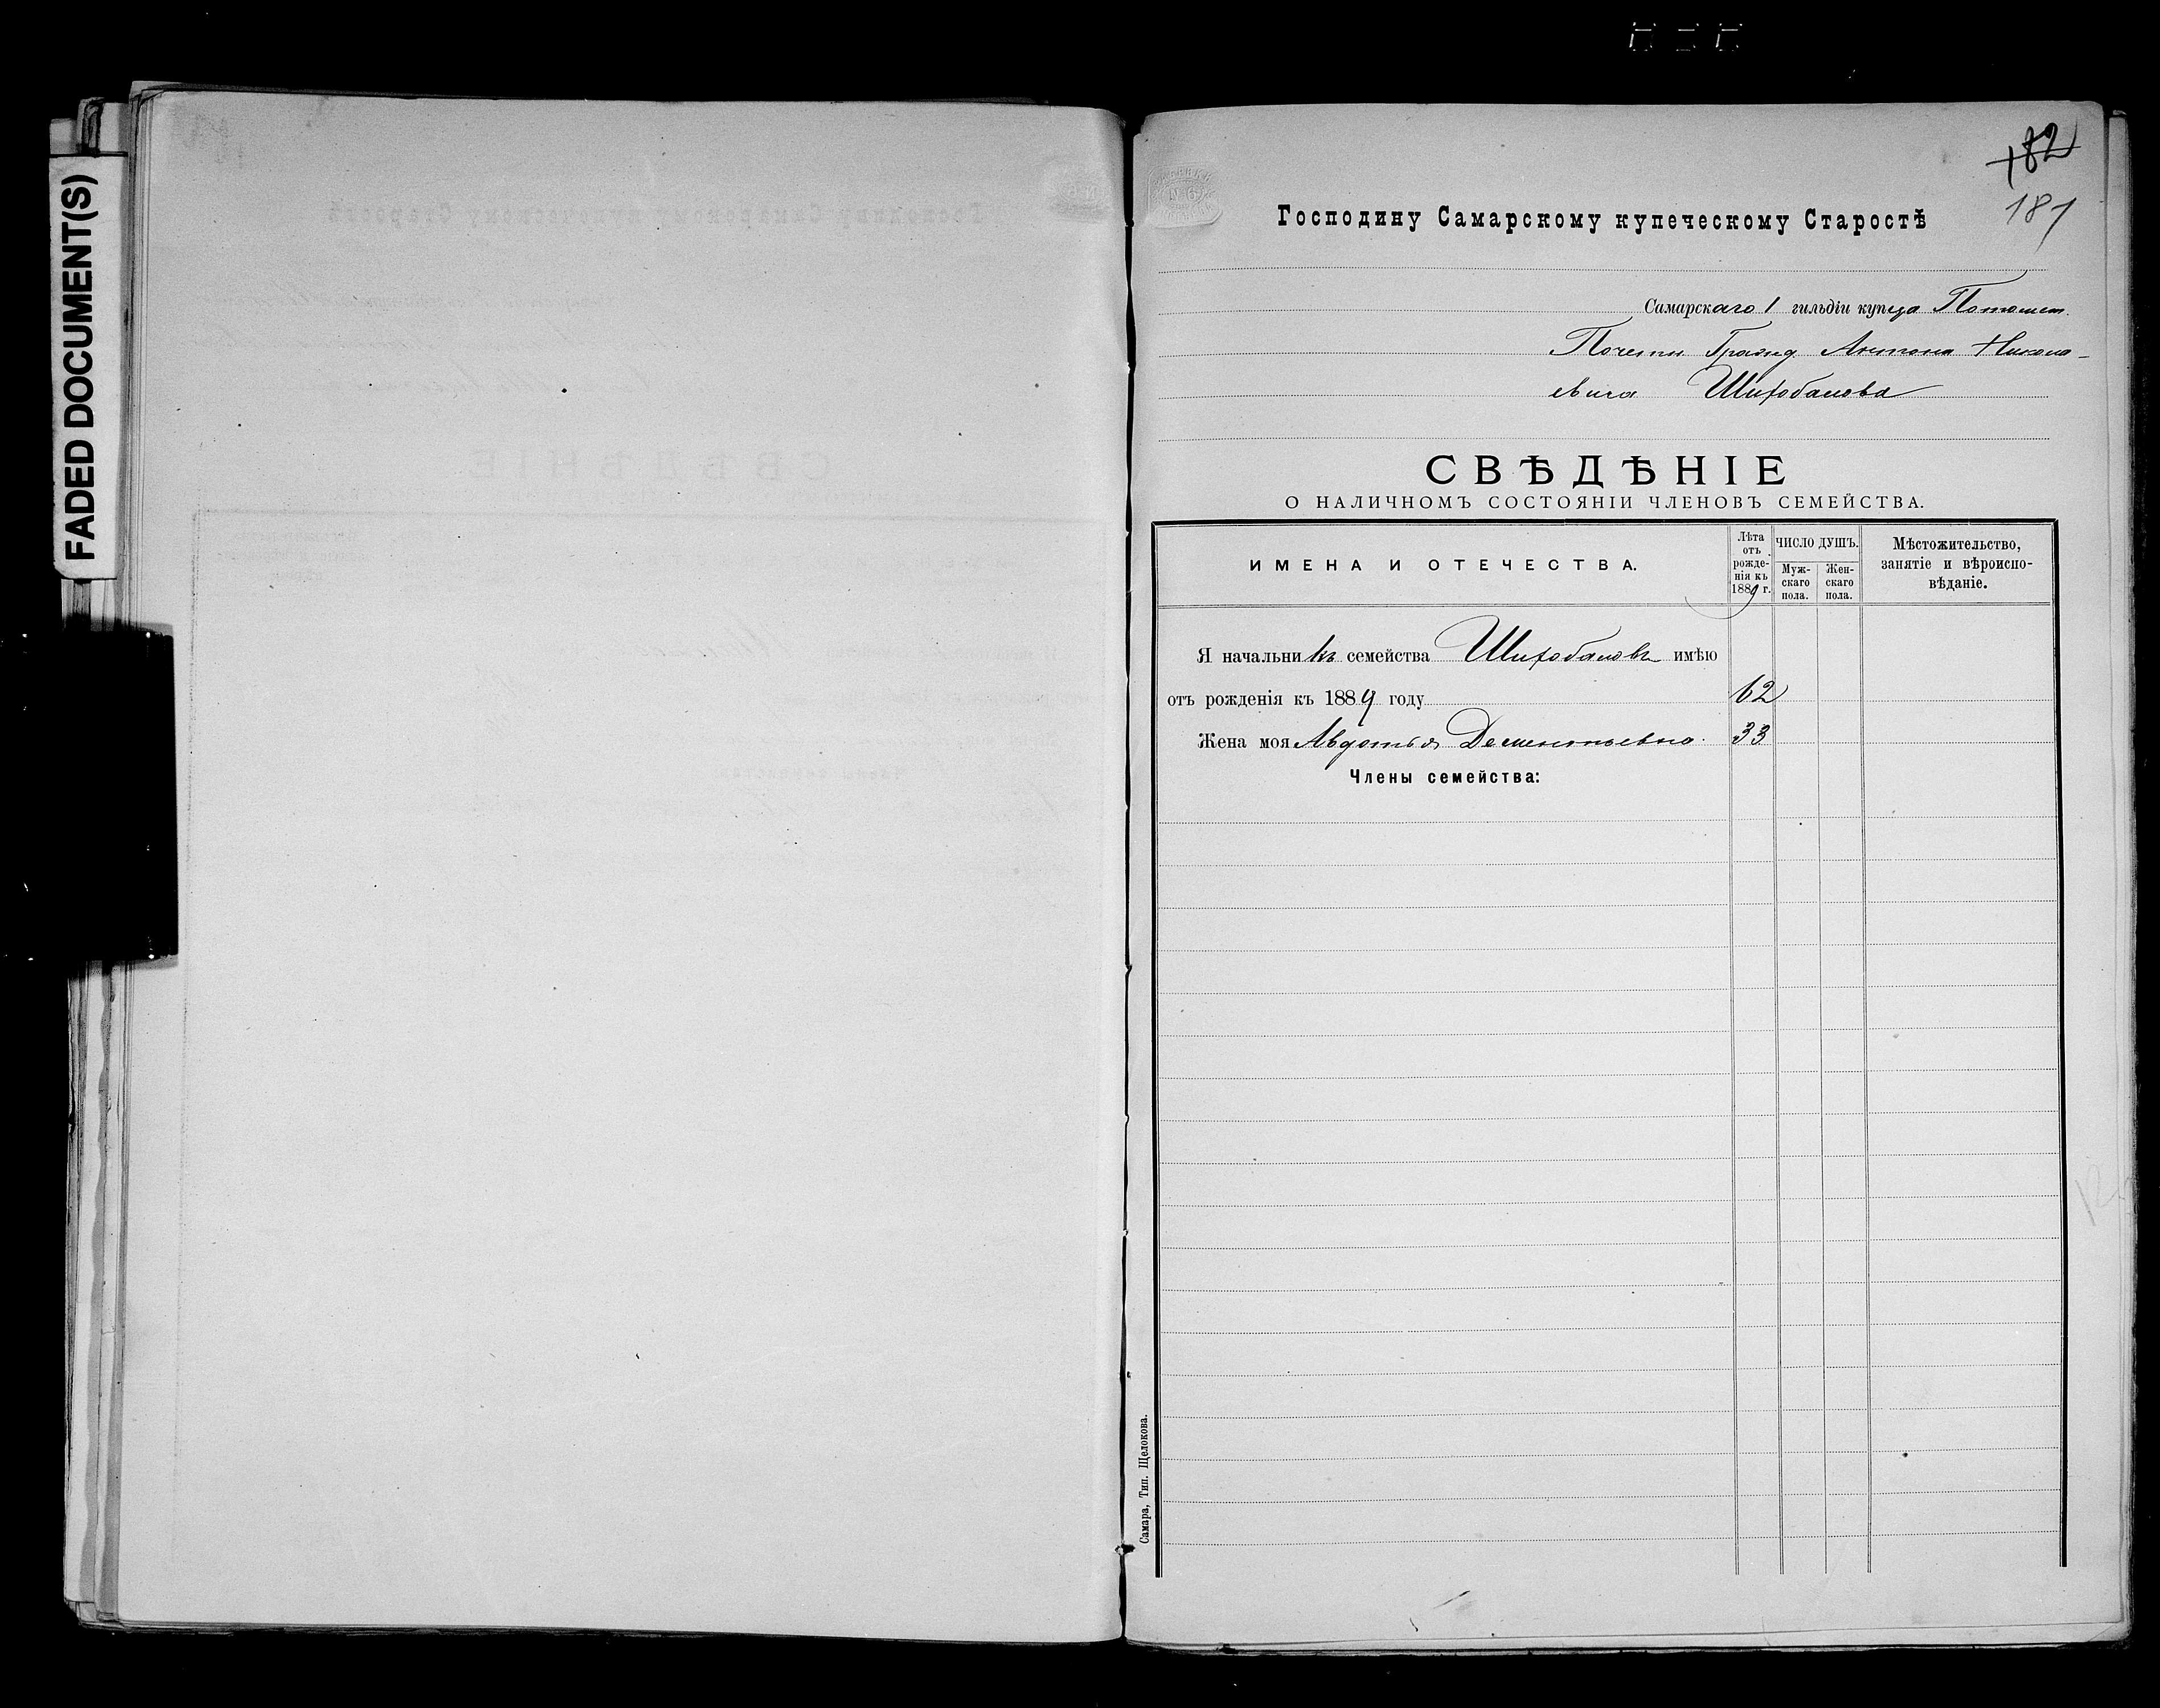 FADED DOCUMENT(S)
182
181
Господину Самарскому купеческому Старостѣ
Самарскаго 1 гильдіи купца Потомст.
Почетн. Гражд. Антона Никола-
евича Шихобалова
СВѢДѢНІЕ
О НАЛИЧНОМЪ СОСТОЯНІИ ЧЛЕНОВЪ СЕМЕЙСТВА.
ИМЕНА И ОТЕЧЕСТВА.
Лѣта отъ рожде-нія къ 1889 г.
ЧИСЛО ДУШЪ.
Муж-скаго пола.
Жен-скаго пола.
Мѣстожительство, занятіе и вѣроиспо-вѣданіе.
Я начальникъ семейства Шихобаловъ имѣю
отъ рожденія къ 1889 году 62
Жена моя Авдотья Дементьевна. 33
Члены семейства:
Самара, Тип. Щелокова.